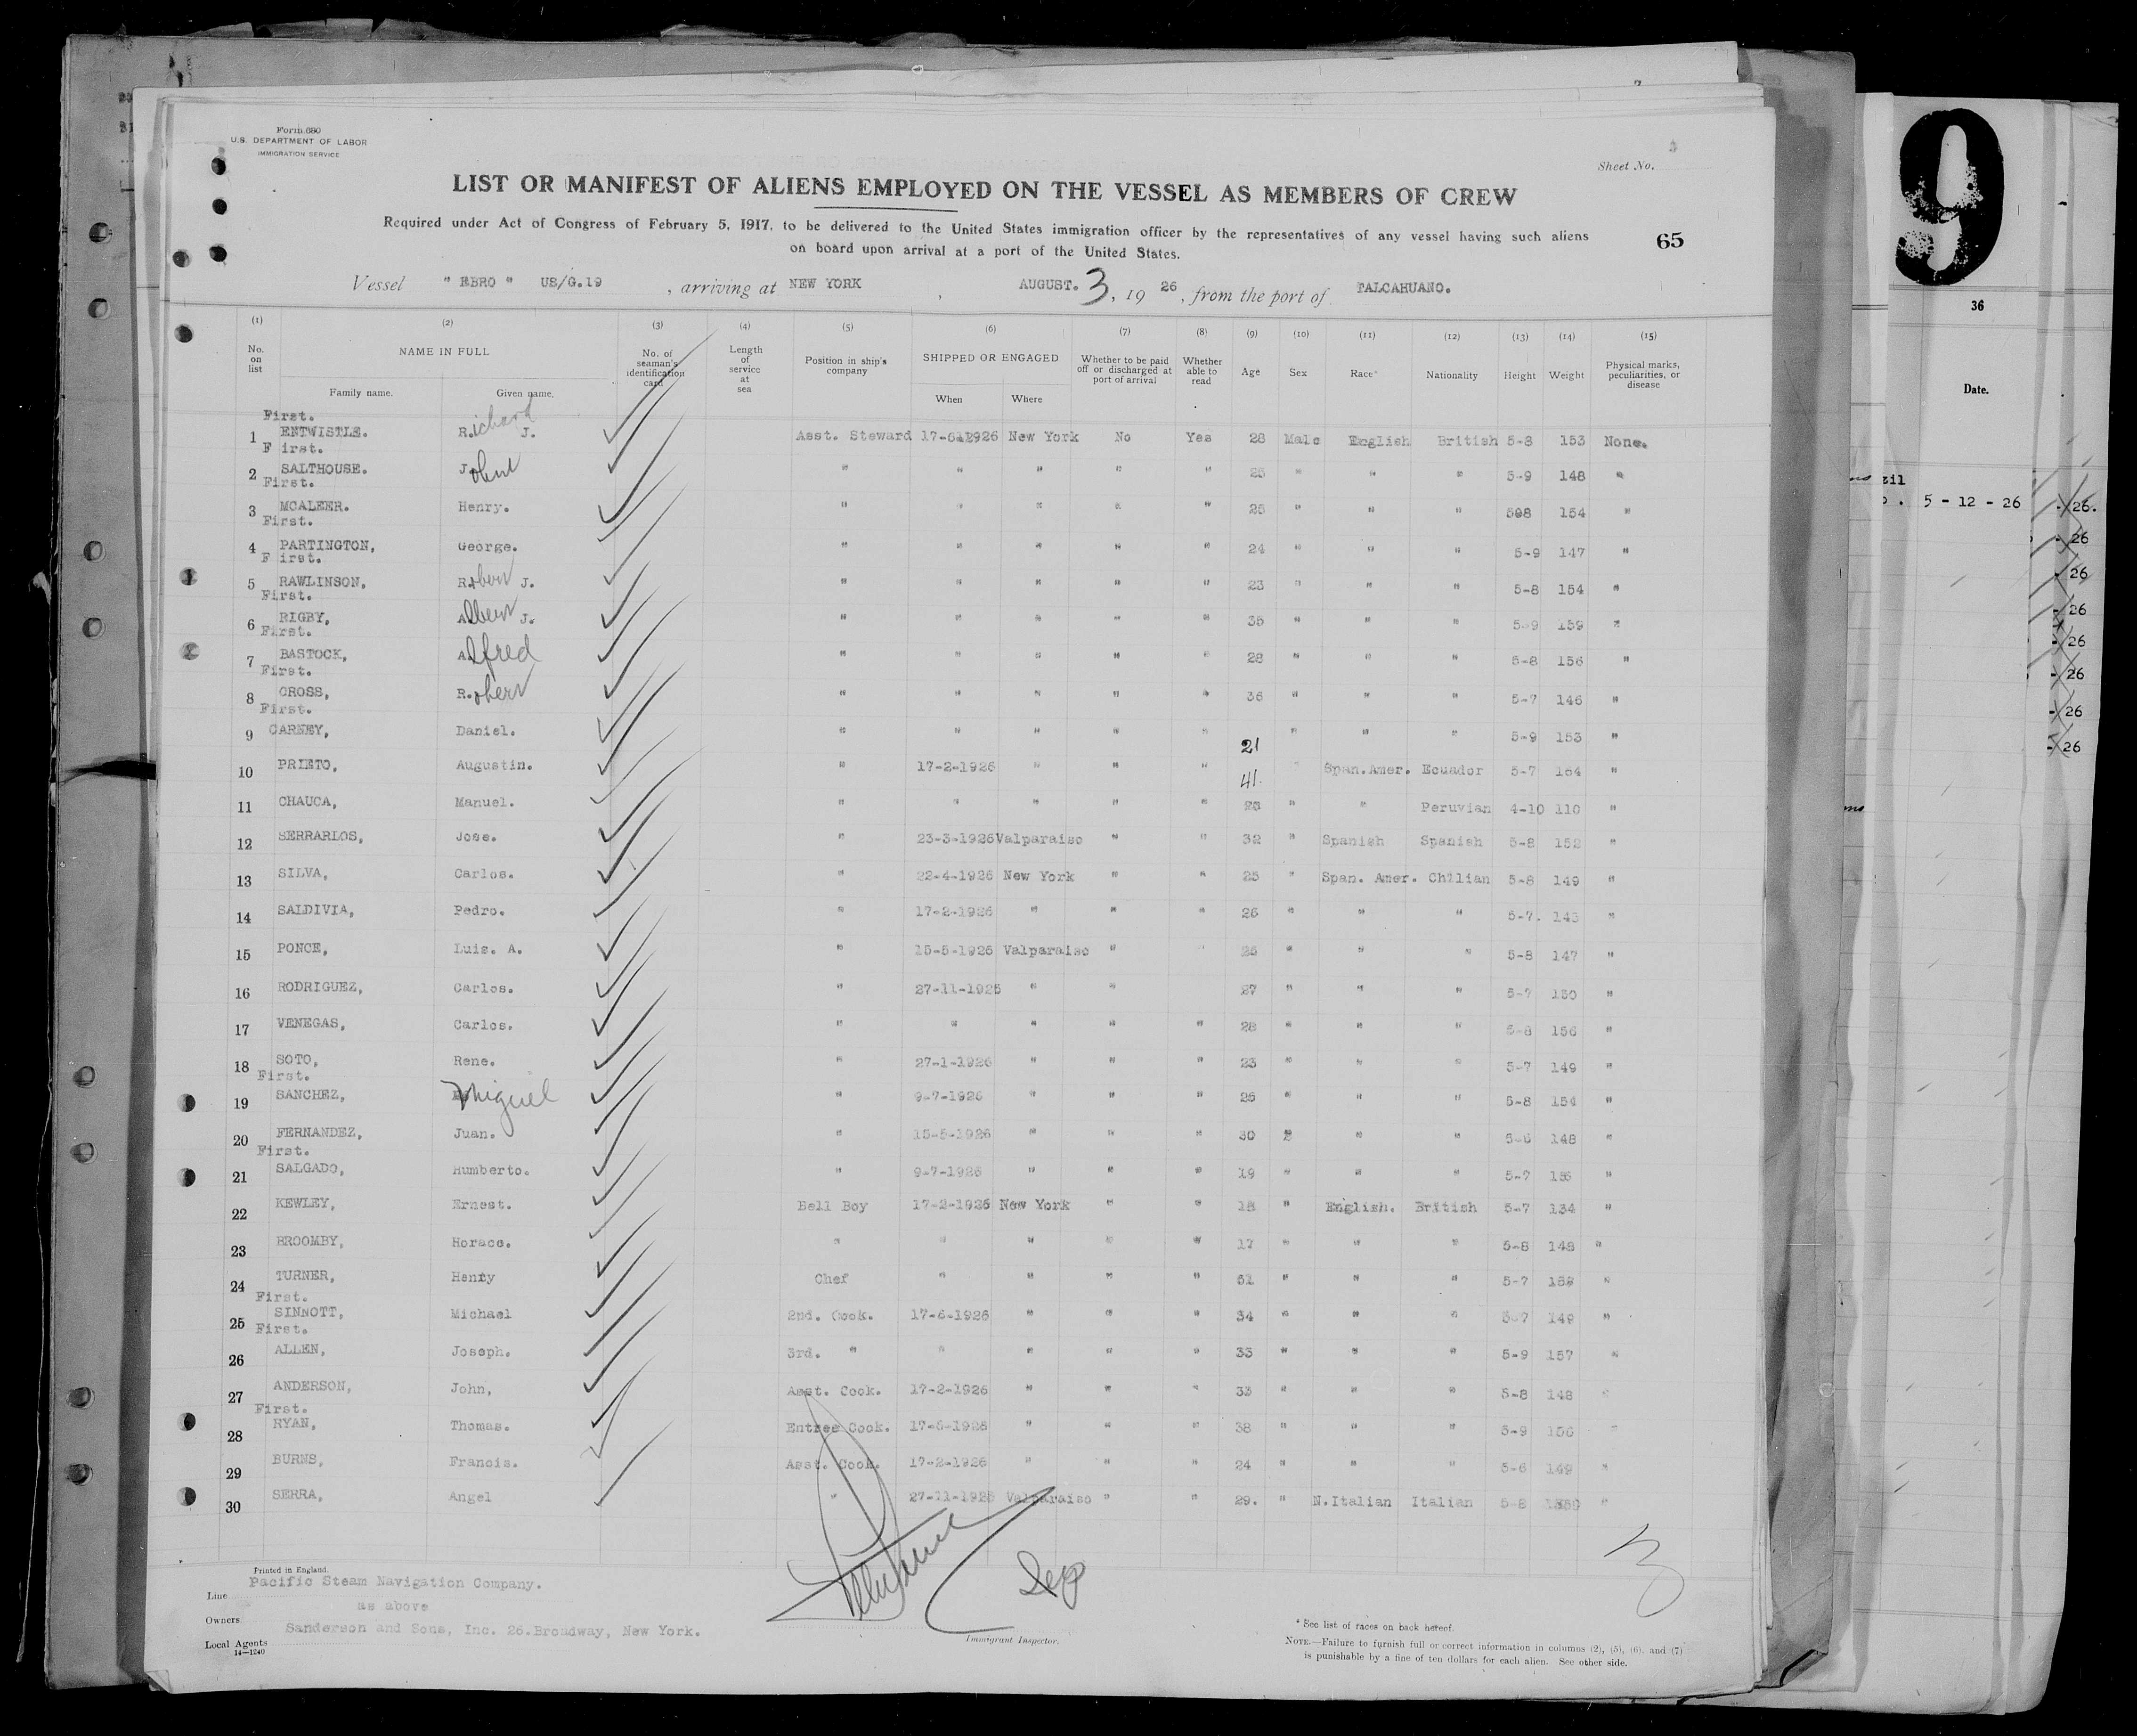 Form 680
U.S. DEPARTMENT OF LABOR
IMMIGRATION SERVICE
Sheet No.
LIST OR MANIFEST OF ALIENS EMPLOYED ON THE VESSEL AS MEMBERS OF CREW
Required under Act of Congress of February 5, 1917, to be delivered to the United States immigration officer by the representatives of any vessel having such aliens
on board upon arrival at a port of the United States.
65
Vessel " EBRO " UB/G.19 , arriving at NEW YORK , AUGUST. 3, 19 26, from the port of TALCAHUANO.
(1) (2) (3) (4) (5) (6) (7) (8) (9) (10) (11) (12) (13) (14) (15)
No. on list NAME IN FULL No. of seaman's identification card Length of service at sea Position in ship's company SHIPPED OR ENGAGED Whether to be paid off or discharged at port of arrival Whether able to read Age Sex Race* Nationality Height Weight Physical marks, peculiarities, or disease
Family name. Given name. When Where
First.
1 ENTWISTLE. R.ichard J. Asst. Steward 17-6-1926 New York No Yes 28 Male English British 5-8 153 None.
First.
2 SALTHOUSE. John " " " " " 25 " " " 5-9 148 "
First.
3 MCALEER. Henry. " " " " " 25 " " " 508 154 "
First.
4 PARTINGTON, George. " " " " " 24 " " " 5-9 147 "
First.
5 RAWLINSON, Robert J. " " " " " 23 " " " 5-8 154 "
First.
6 RIGBY, Albert J. " " " " " 35 " " " 5-9 159 "
First.
7 BASTOCK, Alfred " " " " " 28 " " " 5-8 156 "
First.
8 CROSS, R.obert " " " " " 36 " " " 5-7 146 "
First.
9 CARNEY, Daniel. " " " " " 21 " " " 5-9 153 "
10 PRIETO, Augustin. " 17-2-1926 " " " 41 " Span.Amer. Ecuador 5-7 164 "
11 CHAUCA, Manuel. " " " " " " " Peruvian 4-10 110 "
12 SERRARLOS, Jose. " 23-3-1926 Valparaiso " " 32 " Spanish Spanish 5-8 152 "
13 SILVA, Carlos. " 22-4-1926 New York " " 25 " Span. Amer. Chilian 5-8 149 "
14 SALDIVIA, Pedro. " 17-2-1926 " " " 26 " " " 5-7. 143 "
15 PONCE, Luis. A. " 15-5-1926 Valparaiso " " 25 " " " 5-8 147 "
16 RODRIGUEZ, Carlos. " 27-11-1925 " " 27 " " " 5-7 150 "
17 VENEGAS, Carlos. " " " " " 28 " " " 5-8 156 "
18 SOTO, Rene. " 27-1-1926 " " " 23 " " " 5-7 149 "
First.
19 SANCHEZ, Miguel " 9-7-1926 " " " 25 " " " 5-8 154 "
20 FERNANDEZ, Juan. " 15-5-1926 " " " 30 " " " 5-6 148 "
First.
21 SALGADO, Humberto. " 9-7-1926 " " " 19 " " " 5-7 "
22 KEWLEY, Ernest. Bell Boy 17-2-1926 New York " " 18 " English. British 5-7 134 "
23 BROOMBY, Horace. " " " " " 17 " " " 5-8 148 "
24 TURNER, Henry Chef " " " " 61 " " " 5-7 "
First.
25 SINNOTT, Michael 2nd. Cook. 17-6-1926 " " " 34 " " " 5-7 149 "
First.
26 ALLEN, Joseph. 3rd. " " " " " 33 " " " 5-9 157 "
27 ANDERSON, John, Asst. Cook. 17-2-1926 " " " 33 " " " 5-8 148 "
First.
28 RYAN, Thomas. Entree Cook. 17-6-1926 " " " 38 " " " 5-9 "
29 BURNS, Francis. Asst. Cook. 17-2-1926 " " " 24 " " " 5-6 149 "
30 SERRA, Angel " 27-11-1925 Valparaiso " " 29. " N.Italian Italian 5-8 "
Printed in England.
Line Pacific Steam Navigation Company.
Owners as above
Local Agents Sanderson and Sons, Inc. 26.Broadway, New York.
14—1240
Immigrant Inspector.
* See list of races on back hereof.
NOTE.—Failure to furnish full or correct information in columns (2), (5), (6), and (7)
is punishable by a fine of ten dollars for each alien. See other side.
9
36
Date.
zil
5 - 12 - 26
- 26.
- 26
- 26
- 26
- 26
- 26
- 26
- 26